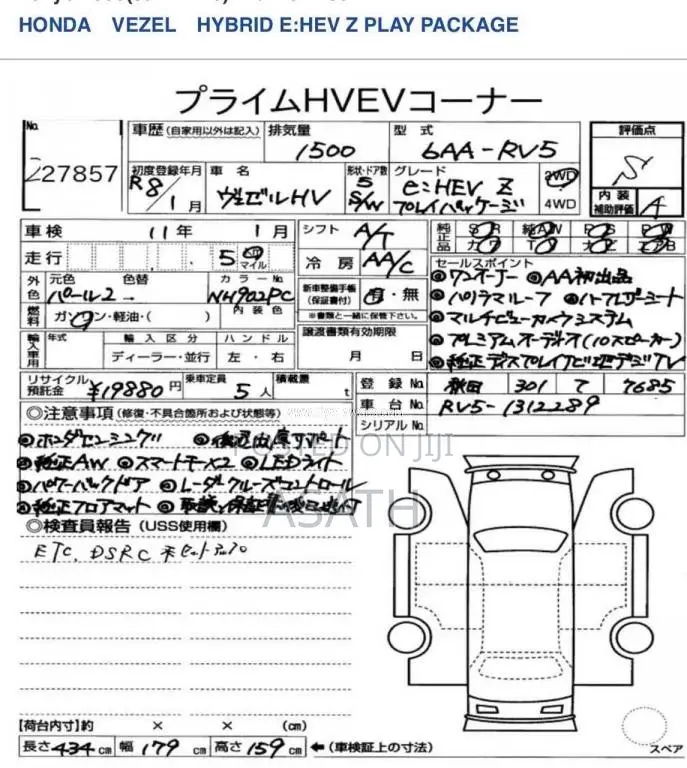 HONDA VEZEL HYBRID E:HEV Z PLAY PACKAGE
プライムHVEVコーナー
No.
27857
車歴 (自家用以外は記入)
排気量
1500
型式
6AA-RV5
評価点
S
初度登録年月
R8/1月
車名
ヴェゼルHV
形状・ドア数
5
S/W
グレード
e:HEV Z
プレイパッケージ
2WD
4WD
内装
補助評価
A
車検
11年 1月
シフト
A/T
純正品
SR
純AW
PS
PW
カワ
TV
走行
5
マイル
冷房
AA/C
セールスポイント
◎ワンオーナー ◎AA初出品
◎パノラマルーフ ◎ハーフレザーシート
◎マルチビューカメラシステム
◎プレミアムオーディオ(10スピーカー)
◎純正ディスプレイナビ地デジTV
外色
元色
パール2
色替
カラーNo.
NH902PC
新車整備手帳
(保証書付)
有・無
※書類と一緒に保管下さい。
燃料
ガソリン・軽油・( )
内装色
輸入車用
年式
輸入区分
ハンドル
ディーラー・並行
左・右
譲渡書類有効期限
月 日
リサイクル
預託金
¥19880円
乗車定員
5人
積載量
t
登録No.
秋田 301 7685
車台No.
RV5-1312289
シリアルNo.
◎注意事項 (修復・不具合箇所および状態等)
◎ホンダセンシング ◎後退出庫サポート
◎純正AW ◎スマートキー×2 ◎LEDライト
◎パワーバックドア ◎レーダークルーズコントロール
◎純正フロアマット ◎取説、保証書
POSTED ON JIJI
ASATH
◎検査員報告 (USS使用欄)
ETC, DSRC 未セットアップ
【荷台内寸】約 × × (cm)
長さ434cm 幅179cm 高さ159cm ←(車検証上の寸法)
スペア